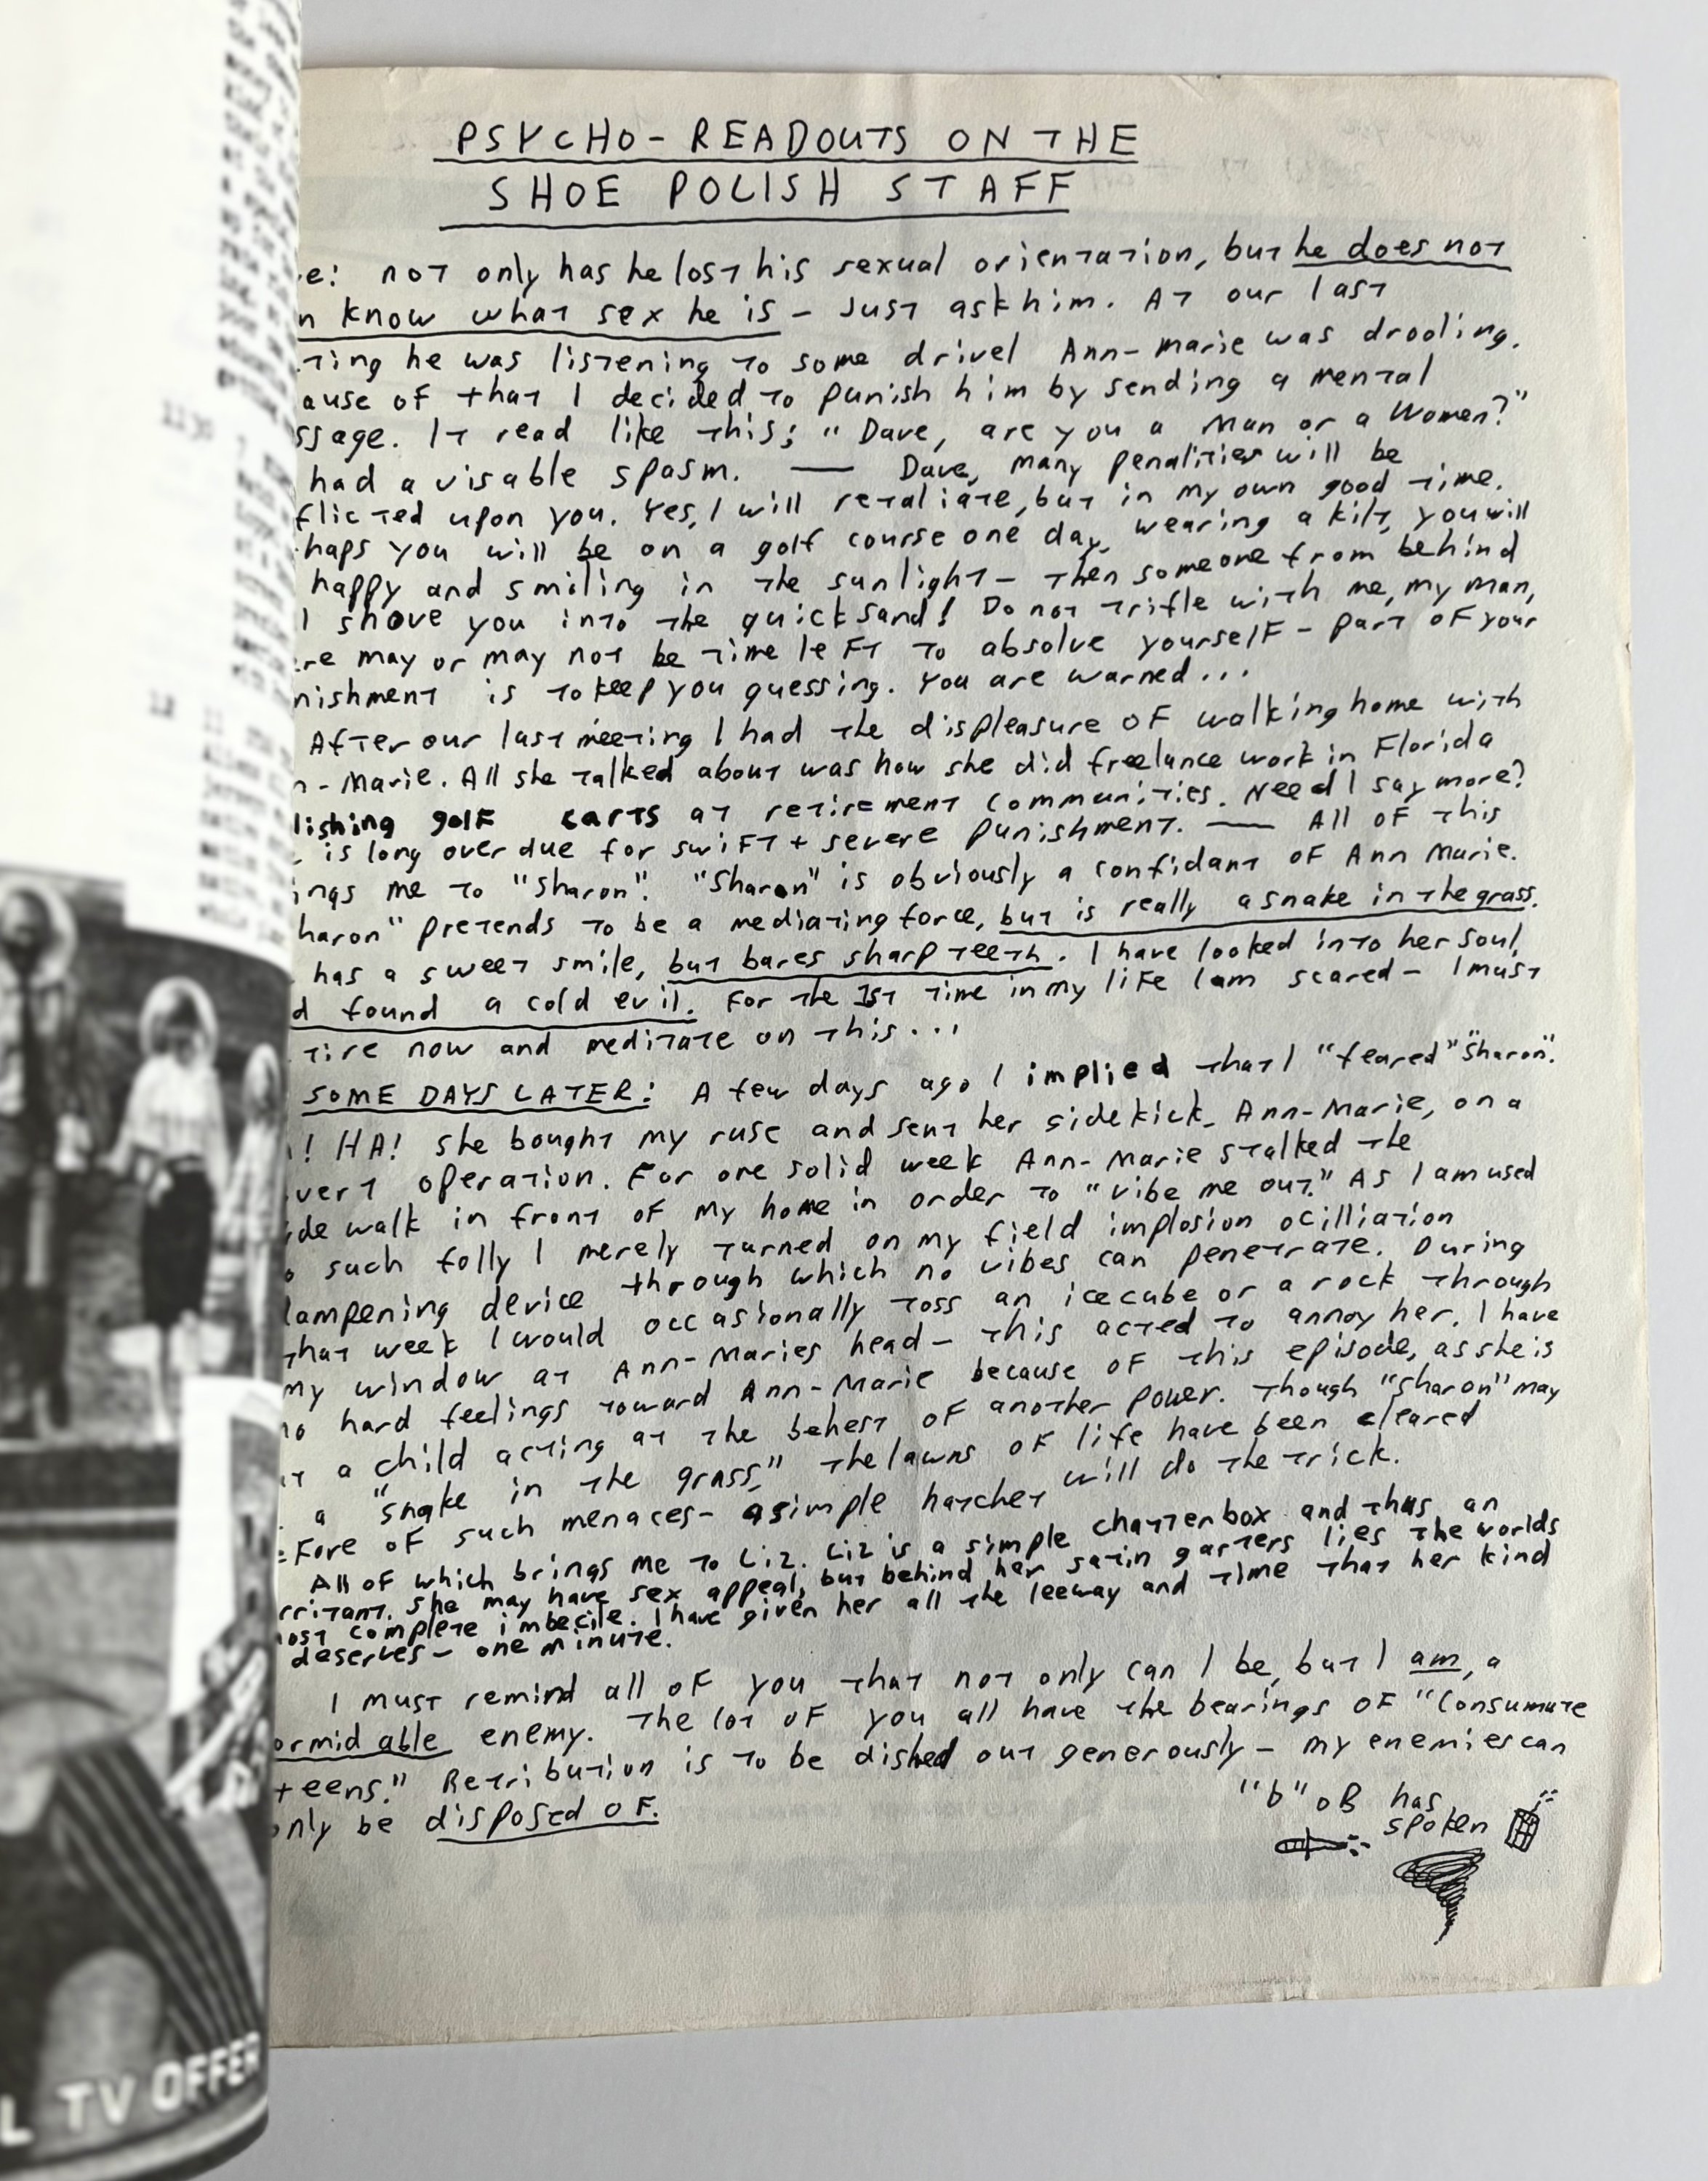 PSYCHO-READOUTS ON THE
SHOE POLISH STAFF
e: not only has he lost his sexual orientation, but he does not
n know what sex he is - Just ask him. At our last
ting he was listening to some drivel Ann-Marie was drooling.
ause of that I decided to punish him by sending a mental
ssage. It read like this; "Dave, are you a Man or a Women?"
had a visable spasm. — Dave, many penalities will be
flicted upon you. Yes, I will retaliate, but in my own good time.
haps you will be on a golf course one day, wearing a kilt, you will
happy and smiling in the sunlight - then someone from behind
l shove you into the quicksand! Do not trifle with me, my man,
re may or may not be time left to absolve yourself - part of your
nishment is to keep you guessing. You are warned...
After our last meeting I had the displeasure of walking home with
n-Marie. All she talked about was how she did freelance work in Florida
lishing golf carts at retirement communities. Need I say more?
is long overdue for swift + severe punishment. — All of this
ings me to "Sharon". "Sharon" is obviously a confidant of Ann Marie.
haron" pretends to be a mediating force, but is really a snake in the grass.
has a sweet smile, but bares sharp teeth. I have looked into her soul,
d found a cold evil. For the 1st time in my life I am scared - I must
tire now and meditate on this...
SOME DAYS LATER: A few days ago I implied that I "feared" "Sharon".
! HA! She bought my ruse and sent her sidekick, Ann-Marie, on a
vert operation. For one solid week Ann-Marie stalked the
ide walk in front of my home in order to "vibe me out." As I am used
o such folly I merely turned on my field implosion ocilliation
dampening device through which no vibes can penetrate. During
that week I would occasionally toss an icecube or a rock through
my window at Ann-Maries head - this acted to annoy her. I have
no hard feelings toward Ann-Marie because of this episode, as she is
ut a child acting at the behest of another power. Though "Sharon" may
a "snake in the grass," the lawns of life have been cleared
efore of such menaces - a simple hatchet will do the trick.
All of which brings me to Liz. Liz is a simple chatterbox and thus an
rritant. She may have sex appeal, but behind her satin garters lies the worlds
most complete imbecile. I have given her all the leeway and time that her kind
deserves - one minute.
I must remind all of you that not only can I be, but I am, a
ormidable enemy. The lot of you all have the bearings of "Consumate
teens." Retribution is to be dished out generously - my enemies can
only be disposed of.
"b"oB has
spoken
L TV OFFER